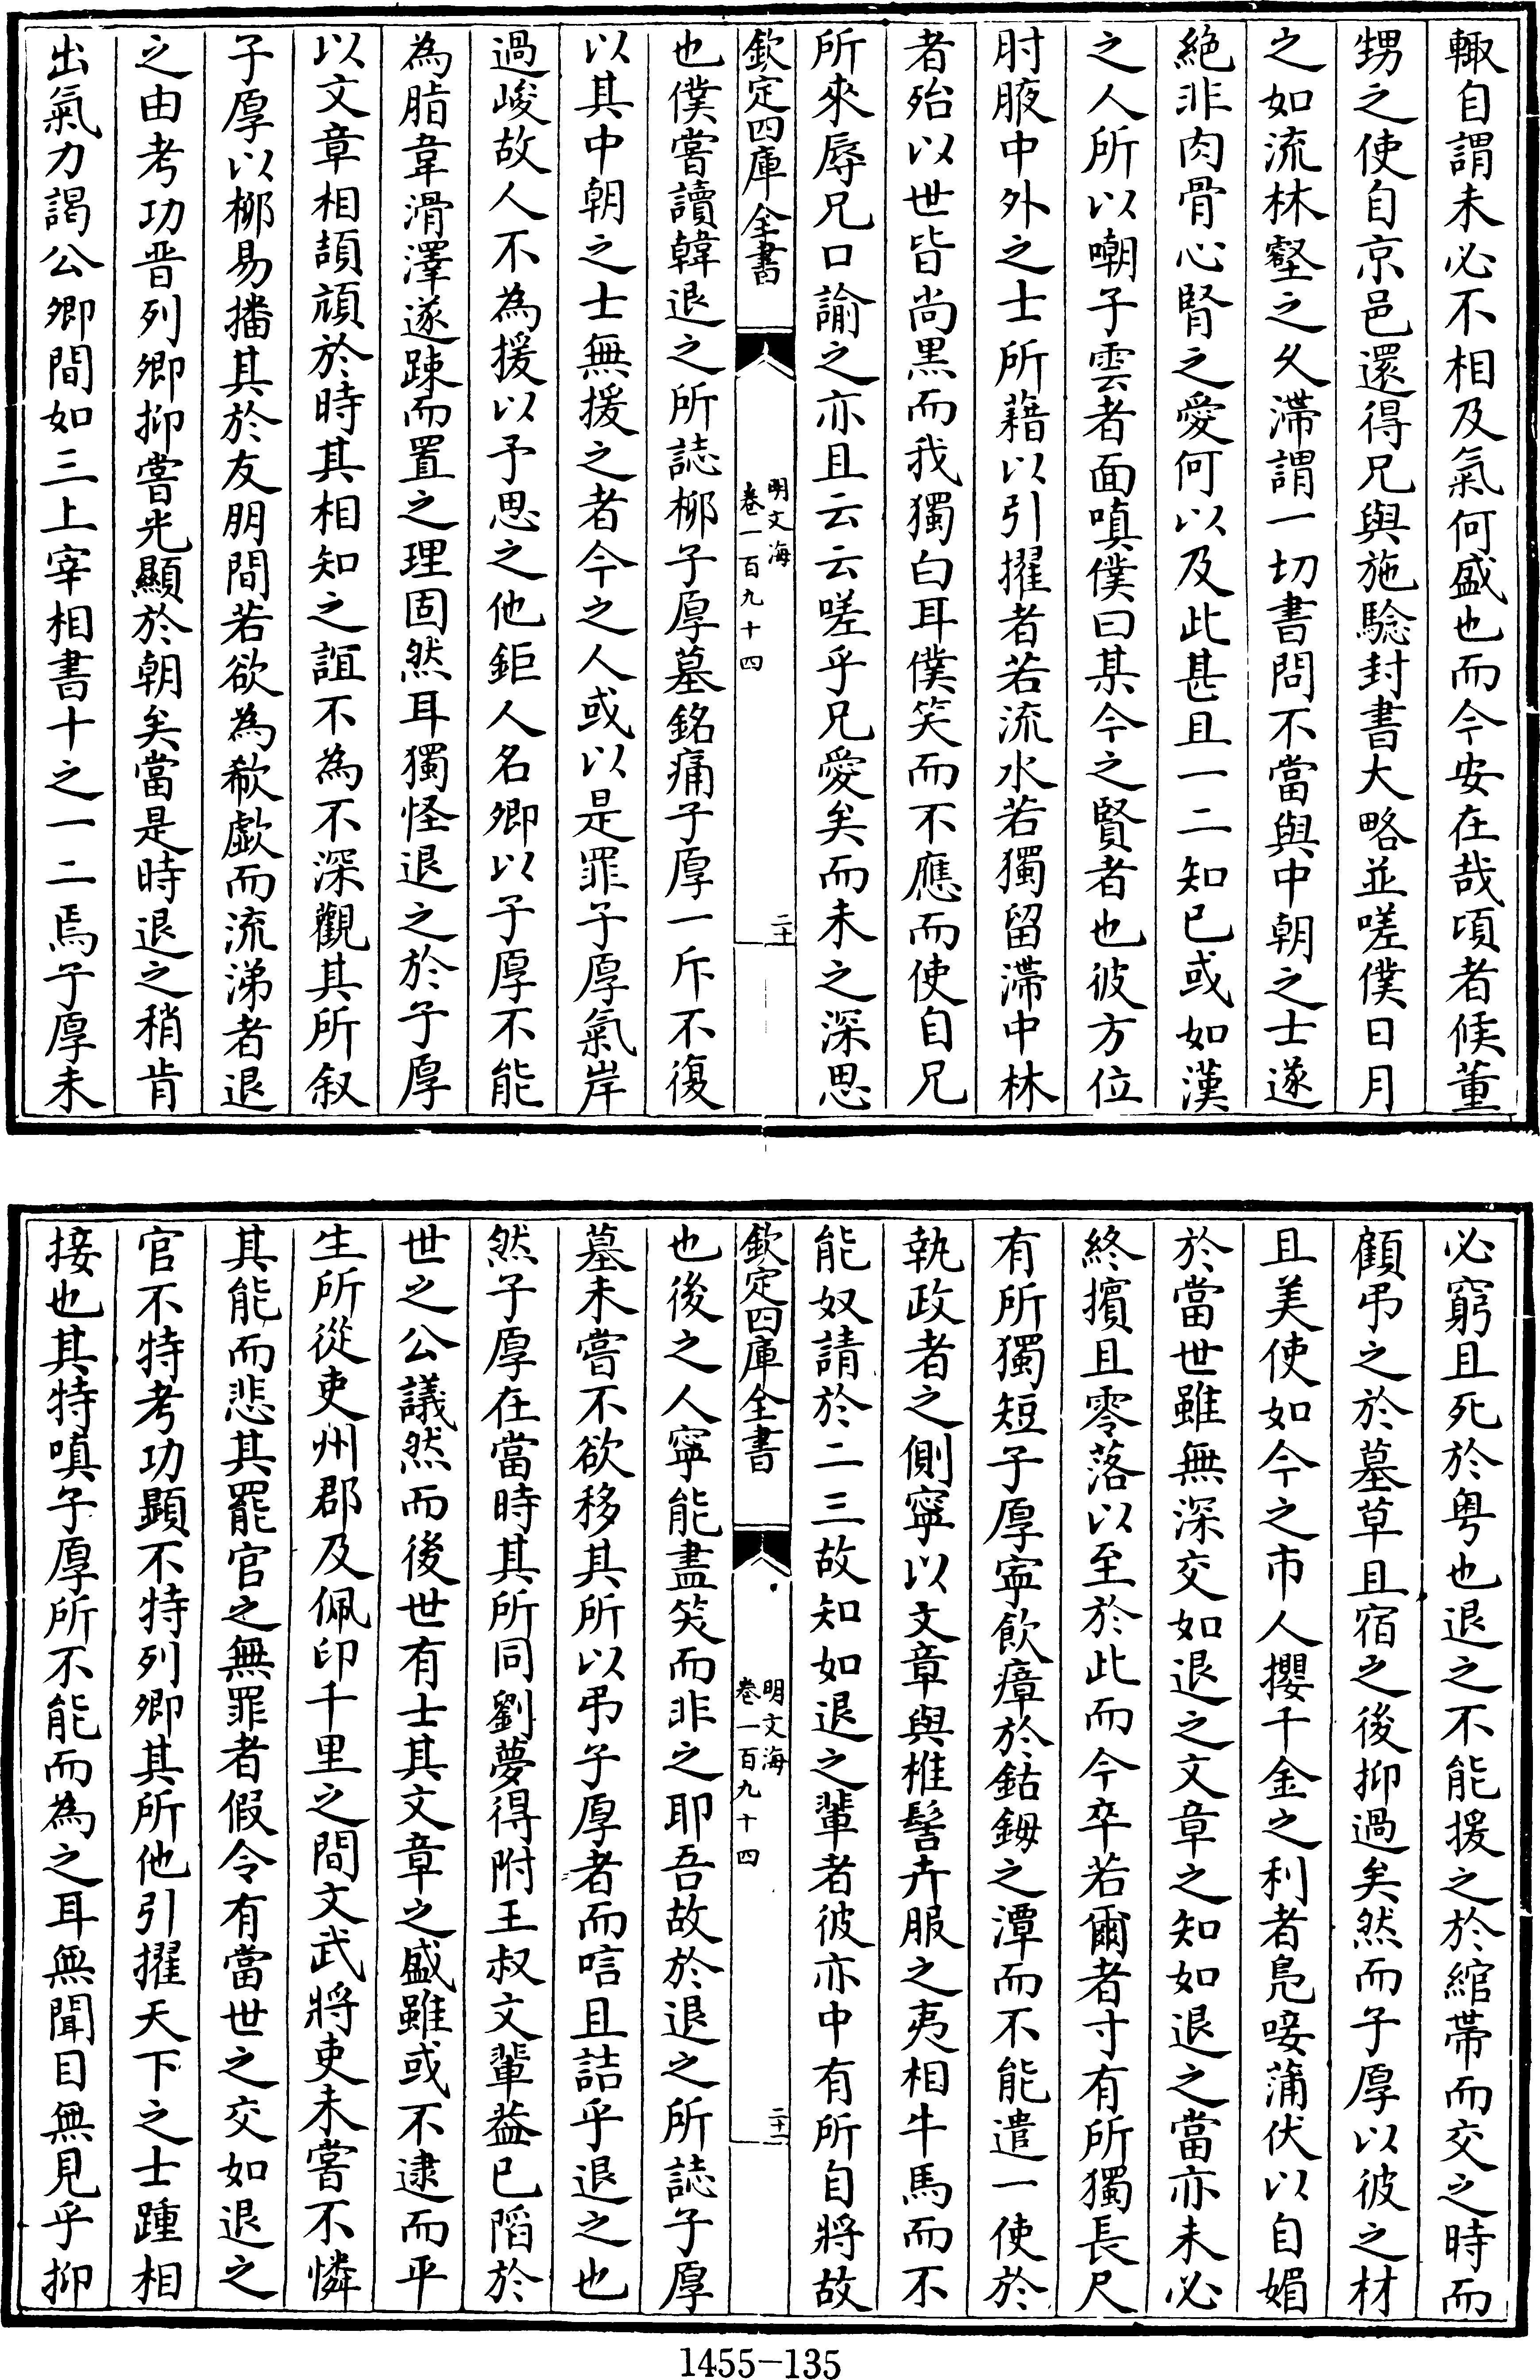 輙自謂未必不相及氣何盛也而今安在哉頃者候董
甥之使自京邑還得兄與施騐封書大略並嗟僕日月
之如流林壑之乆滯謂一切書問不當與中朝之士遂
絶非肉骨心腎之愛何以及此甚且一二知已或如漢
之人所以嘲子雲者面嗔僕曰某今之賢者也彼方位
肘腋中外之士所藉以引擢者若流水若獨留滯中林
者殆以世皆尚黑而我獨白耳僕笑而不應而使自兄
所來辱兄口諭之亦且云云嗟乎兄愛矣而未之深思
欽定四庫全書
明文海
卷一百九十四
二十
也僕嘗讀韓退之所誌栁子厚墓銘痛子厚一斥不復
以其中朝之士無援之者今之人或以是罪子厚氣岸
過峻故人不為援以予思之他鉅人名卿以子厚不能
為脂韋滑澤遂踈而置之理固然耳獨怪退之於子厚
以文章相頡頏於時其相知之誼不為不深觀其所叙
子厚以栁易播其於友朋間若欲為欷歔而流涕者退
之由考功晋列卿抑嘗光顯於朝矣當是時退之稍肯
出氣力謁公卿間如三上宰相書十之一二焉子厚未
必窮且死於粤也退之不能援之於綰帶而交之時而
顧弔之於墓草且宿之後抑過矣然而子厚以彼之材
且美使如今之市人攖千金之利者鳧唼蒲伏以自媚
於當世雖無深交如退之文章之知如退之當亦未必
終擯且零落以至於此而今卒若爾者寸有所獨長尺
有所獨短子厚寧飲瘴於鈷鉧之潭而不能遣一使於
執政者之側寧以文章與椎髻卉服之夷相牛馬而不
能奴請於二三故知如退之輩者彼亦中有所自將故
欽定四庫全書
明文海
卷一百九十四
二十一
也後之人寧能盡笑而非之耶吾故於退之所誌子厚
墓未嘗不欲移其所以弔子厚者而唁且詰乎退之也
然子厚在當時其所同劉夢得附王叔文輩葢已䧟於
世之公議然而後世有士其文章之盛雖或不逮而平
生所從吏州郡及佩印千里之間文武將吏未嘗不憐
其能而悲其罷官之無罪者假令有當世之交如退之
官不特考功顯不特列卿其所他引擢天下之士踵相
接也其特嗔子厚所不能而為之耳無聞目無見乎抑
1455-135